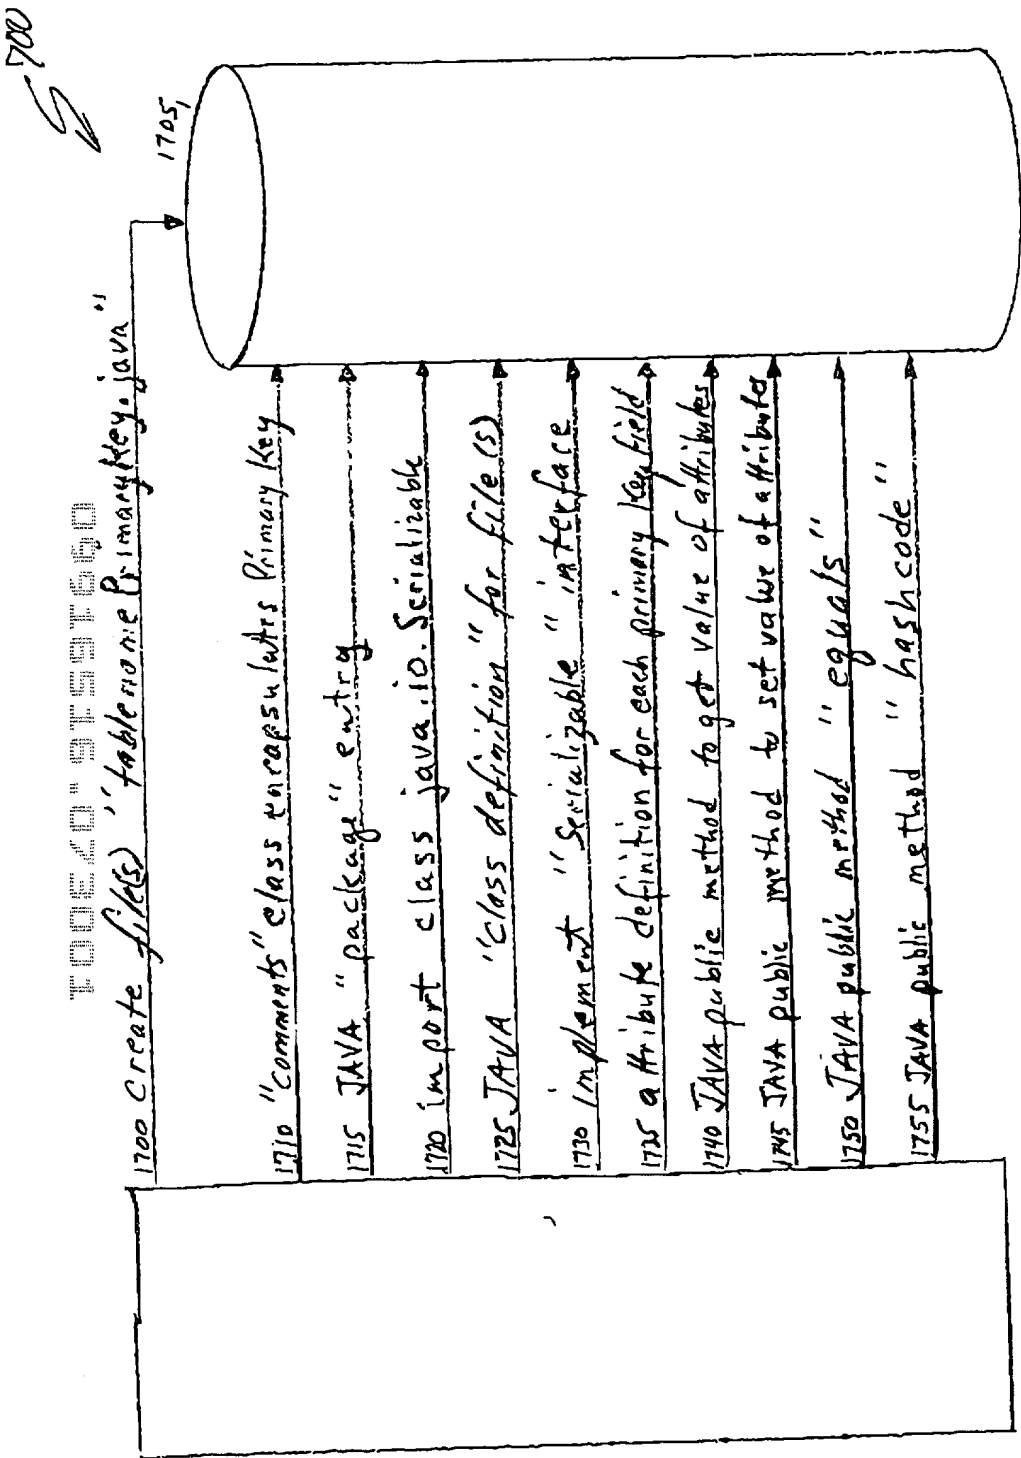 700
1705
1700 Create file(s) "tablenamePrimaryKey.java"
1710 "comments" class encapsulates Primary Key
1715 JAVA "package" entry
1720 import class java.io.Serializable
1725 JAVA "class definition" for file(s)
1730 implement "Serializable" interface
1735 attribute definition for each primary key field
1740 JAVA public method to get value of attributes
1745 JAVA public method to set value of attributes
1750 JAVA public method "equals"
1755 JAVA public method "hashcode"